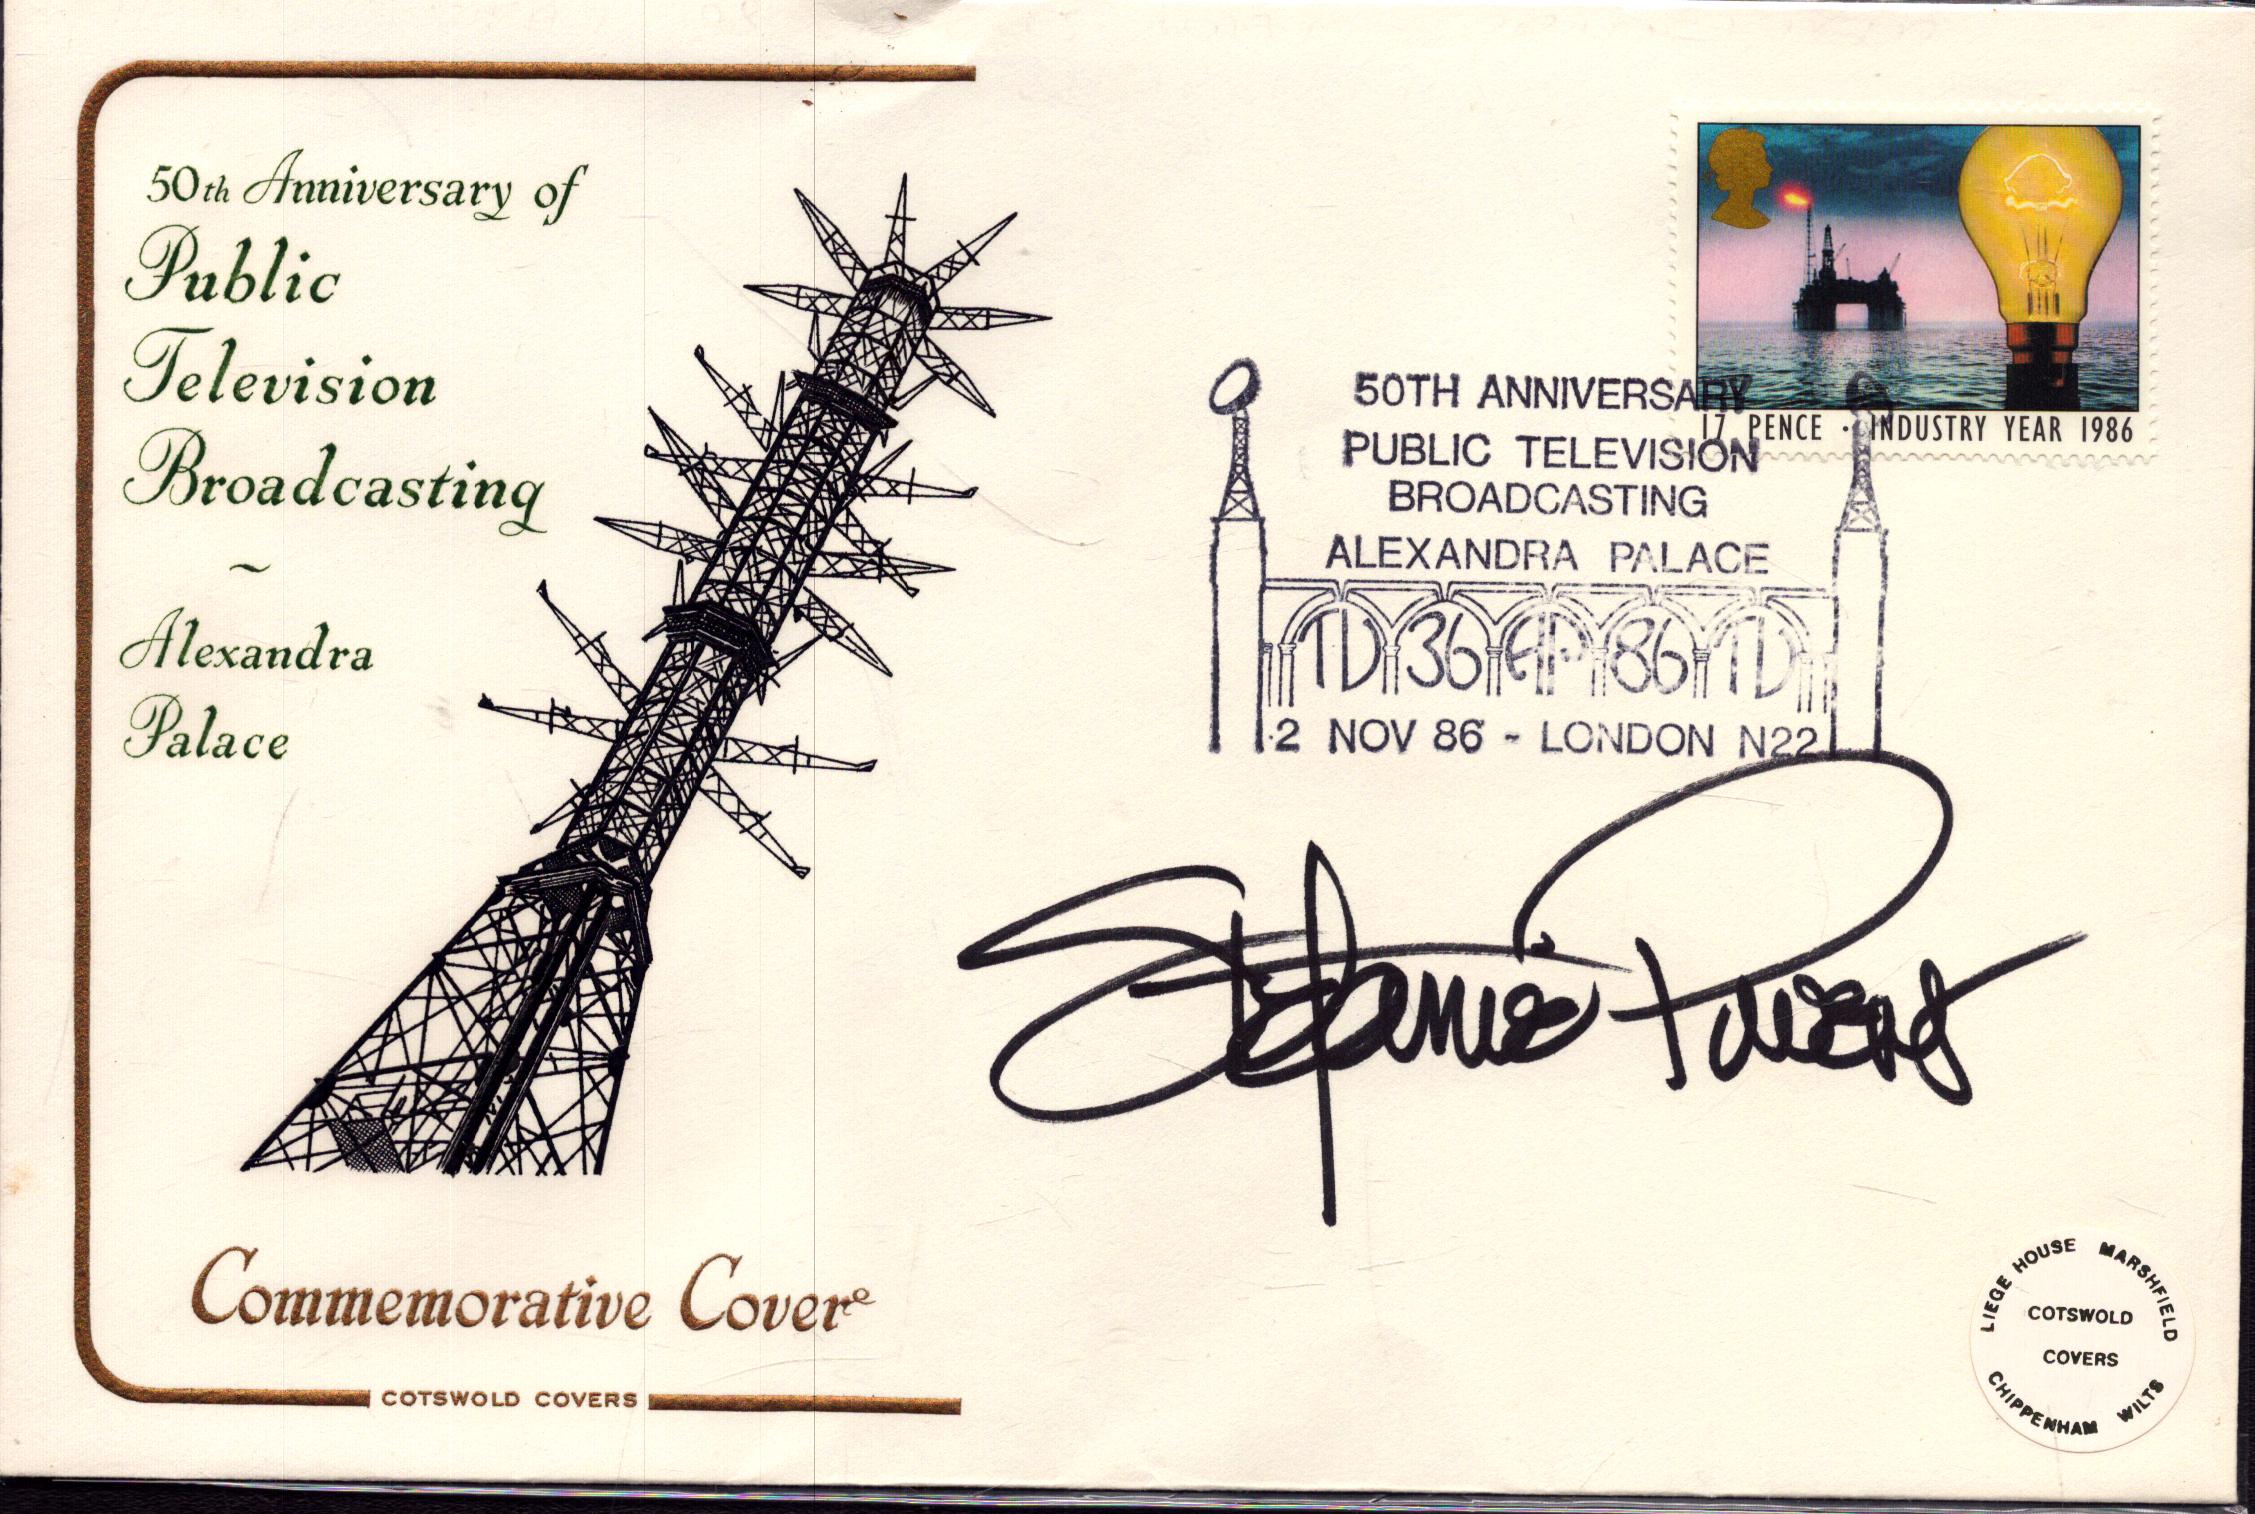 50th Anniversary of
Public
Television
Broadcasting
~
Alexandra
Palace
Commemorative Cover
COTSWOLD COVERS
17 PENCE · INDUSTRY YEAR 1986
50TH ANNIVERSARY
PUBLIC TELEVISION
BROADCASTING
ALEXANDRA PALACE
TV 36 AP 86 TV
2 NOV 86 - LONDON N22
Stefanie Powers
LIEGE HOUSE MARSHFIELD
COTSWOLD
COVERS
CHIPPENHAM WILTS